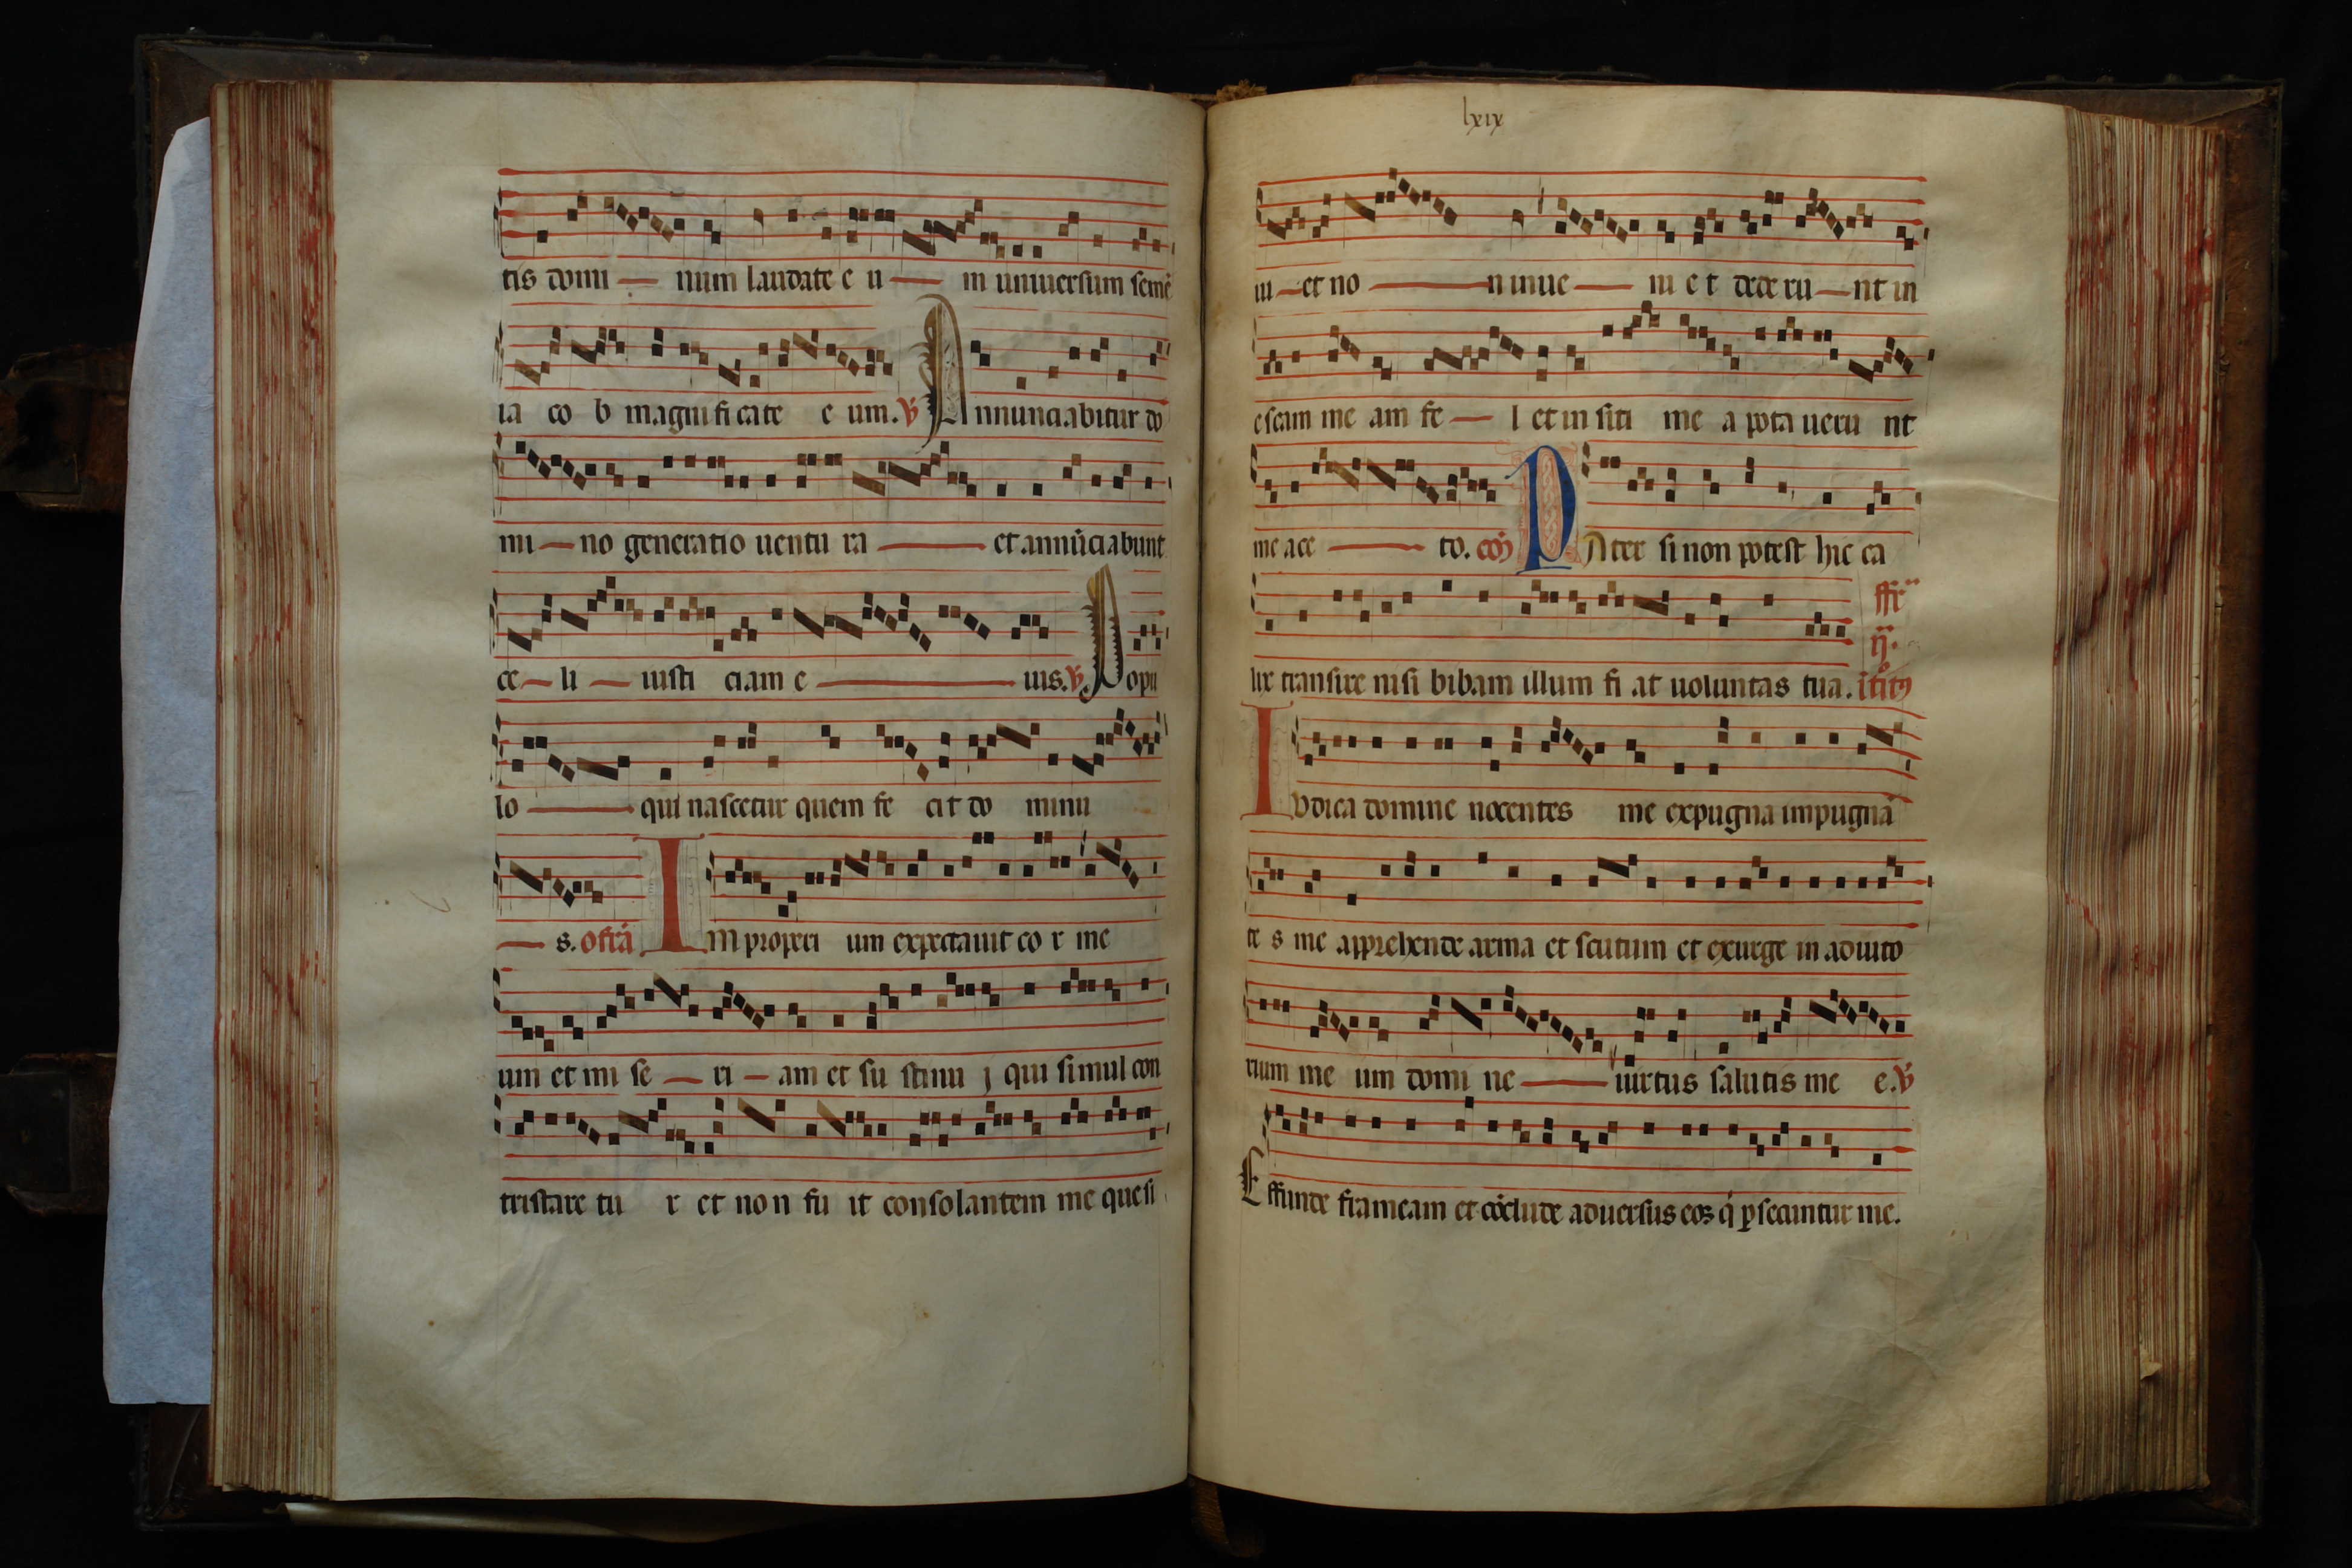 tis domi — num laudate e u — m universum semē
ia co b magnificate e um. ℣ Annunciabitur do
mi — no generatio uentu ra — et annūciabunt
ce — li — iusti ciam e — ius. ℣. Popu
lo — qui nascetur quem fe cit do minu
— s. offrā Improperi um expectauit co r me
um et mi se — ri — am et su stinu j qui simul con
tristare tu r et non fu it consolantem me quesi
lxix
ui — et no — n inue — ni e t dede ru — nt in
escam me am fe — l et in siti me a pota ueru nt
me ace — to. cōō Pater si non potest hic ca
ffr
ij.
lix transire nisi bibam illum fi at uoluntas tua.
Iudica domine nocentes me expugna impugnā
te s me apprehende arma et scutum et exurge in adiuto
rium me um domi ne — uirtus salutis me e. ℣
Effunde frameam et cōclude aduersus eos q̇ ꝑsecuntur me.